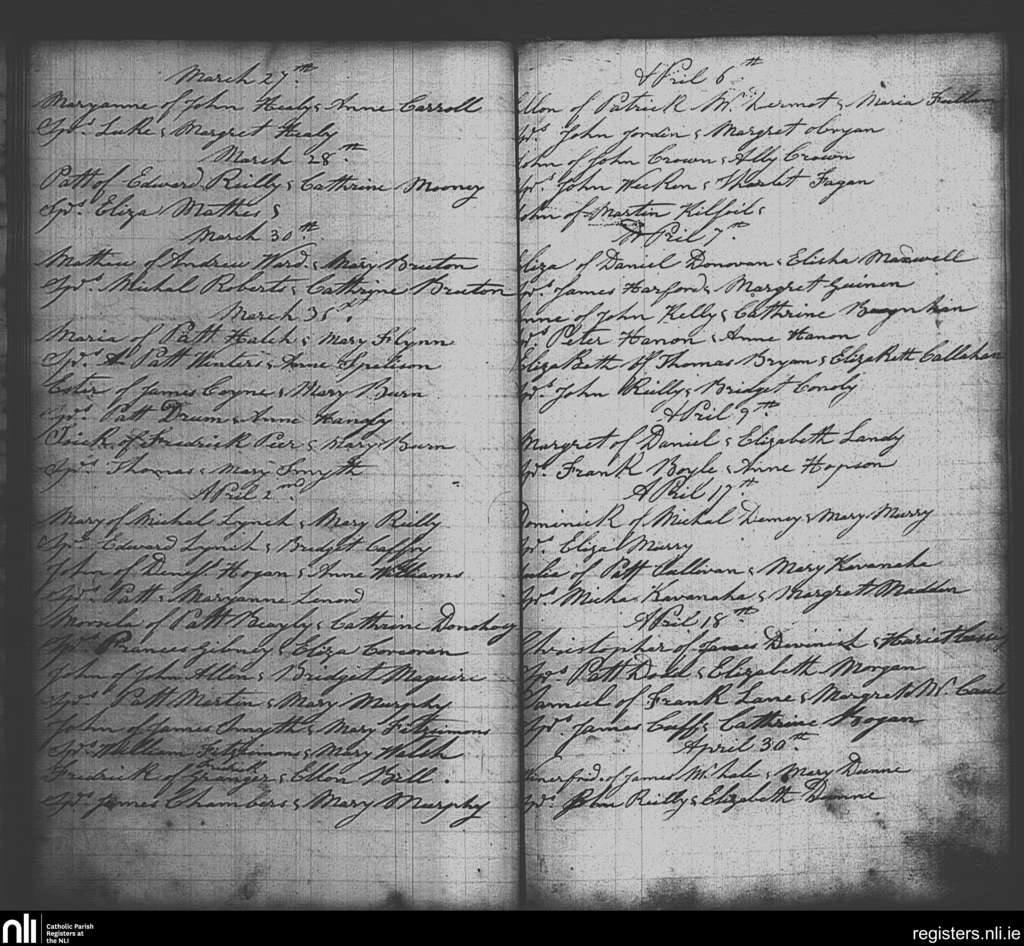 March 27th
Maryanne of John Healy & Anne Carroll
Sprs Luke & Margret Healy
March 28th
Patt of Edward Reilly & Cathrine Mooney
Sprs Eliza Mathes &
March 30th
Mathew of Andrew Ward & Mary Bruton
Sprs Michal Roberts & Cathrine Bruton
March 31st
Maria of Patt Hatch & Mary Flynn
Sprs Patt Winters & Anne
Ester of James Coyne & Mary Burn
Sprs Patt Drum & Anne Handy
of Fredrick Peer & Mary Burn
Sprs Thomas & Mary Smyth
April 2nd
Mary of Michal Lynch & Mary Reilly
Sprs Edward Lynch & Bridget Caffry
John of Hogan & Anne Williams
Sprs Patt & Maryanne Lenord
of Patt Beagly & Cathrine Donohoey
Sprs Frances Gibney & Eliza Corcoran
John of John Allen & Bridgit Maguire
Sprs Patt Martin & Mary Murphy
John of James Smyth & Mary Fitzsimons
Sprs William Fitzsimons & Mary Walsh
Fredrick of Granger & Ellon Bell.
Sprs James Chambers & Mary Murphy
April 6th
Ellon of Patrick McDermot & Maria Fullam
Sprs John Jordin & Margret Obryan
John of John Crown & Ally Crown
Sprs John & Fagan
John of Martin Kilfoil &
April 7th
Eliza of Daniel Donovan & Elisha Maxwell
Sprs James Harford & Margret Guinen
Anne of John Kelly & Cathrine
Sprs Peter Hanon & Anne Hanon
ElizaBeth of Thomas Bryan & ElizaBeth Callahan
Sprs John Reilly & Bridget Conoly
April 9th
Margret of Daniel & Elizabeth Landy
Sprs Frank Boyle & Anne Hopson
April 17th
Dominick of Michal Demey & Mary Murry
Sprs Eliza Murry
Julia of Patt Sullivan & Mary Kavanaha
Sprs Micha Kavanaha & Margrett Madden
April 18th
Christopher of James & Hariet
Sprs Patt Dodd & Elizabeth Morgan
Samuel of Frank Lane & Margret McCaul
Sprs James Cuff & Cathrine Hogan
April 30th
of James McHale & Mary Dunne
Sprs John Reilly & Elizabeth Dunne
nli
Catholic Parish
Registers at
the NLI
registers.nli.ie